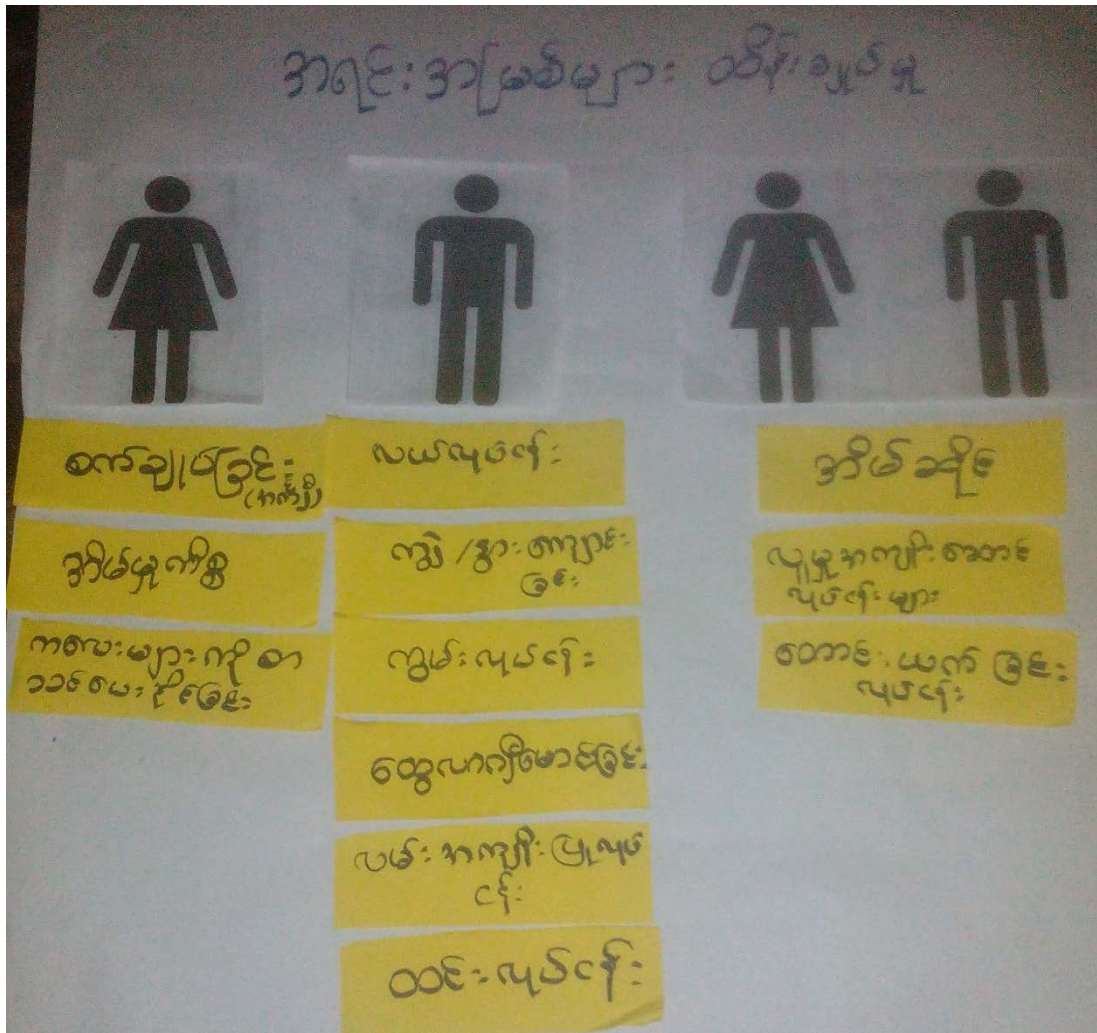 အရင်းအမြစ်များ ထိန်းချုပ်မှု
စက်ချုပ်ခြင်း
(အင်္ကျီ)
အိမ်မှုကိစ္စ
ကလေးများကို စာ
သင်ပေးနိုင်ခြင်း
လယ်လုပ်ငန်း
ကျွဲ/နွား ကျောင်း
ခြင်း
ကွမ်းလုပ်ငန်း
ထွေလာဂျီမောင်းခြင်း
လမ်းအကျိုးပြုလုပ်
ငန်း
ထင်းလုပ်ငန်း
အိမ်ဆိုင်
လူမှုအကျိုးဆောင်
လုပ်ငန်းများ
တောင်းယက်ခြင်း
လုပ်ငန်း